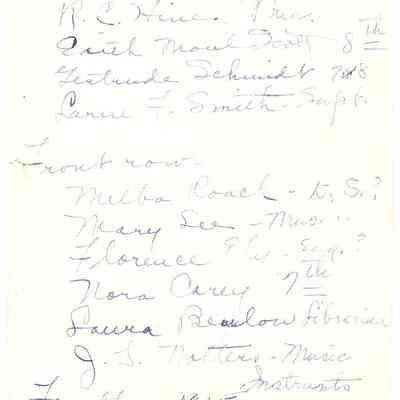 R. C. Hines - Prin.
Edith Maul Scott 8th
Gertrude Schmidt 7&8
F. Smith - Supt.
Front row -
Melba Roach - D. S. ?
Mary Lee - Music
Florence Ely - Eng. ?
Nora Carey 7th
Laura Beaulow Librarian
J. L. - Music
Instruments